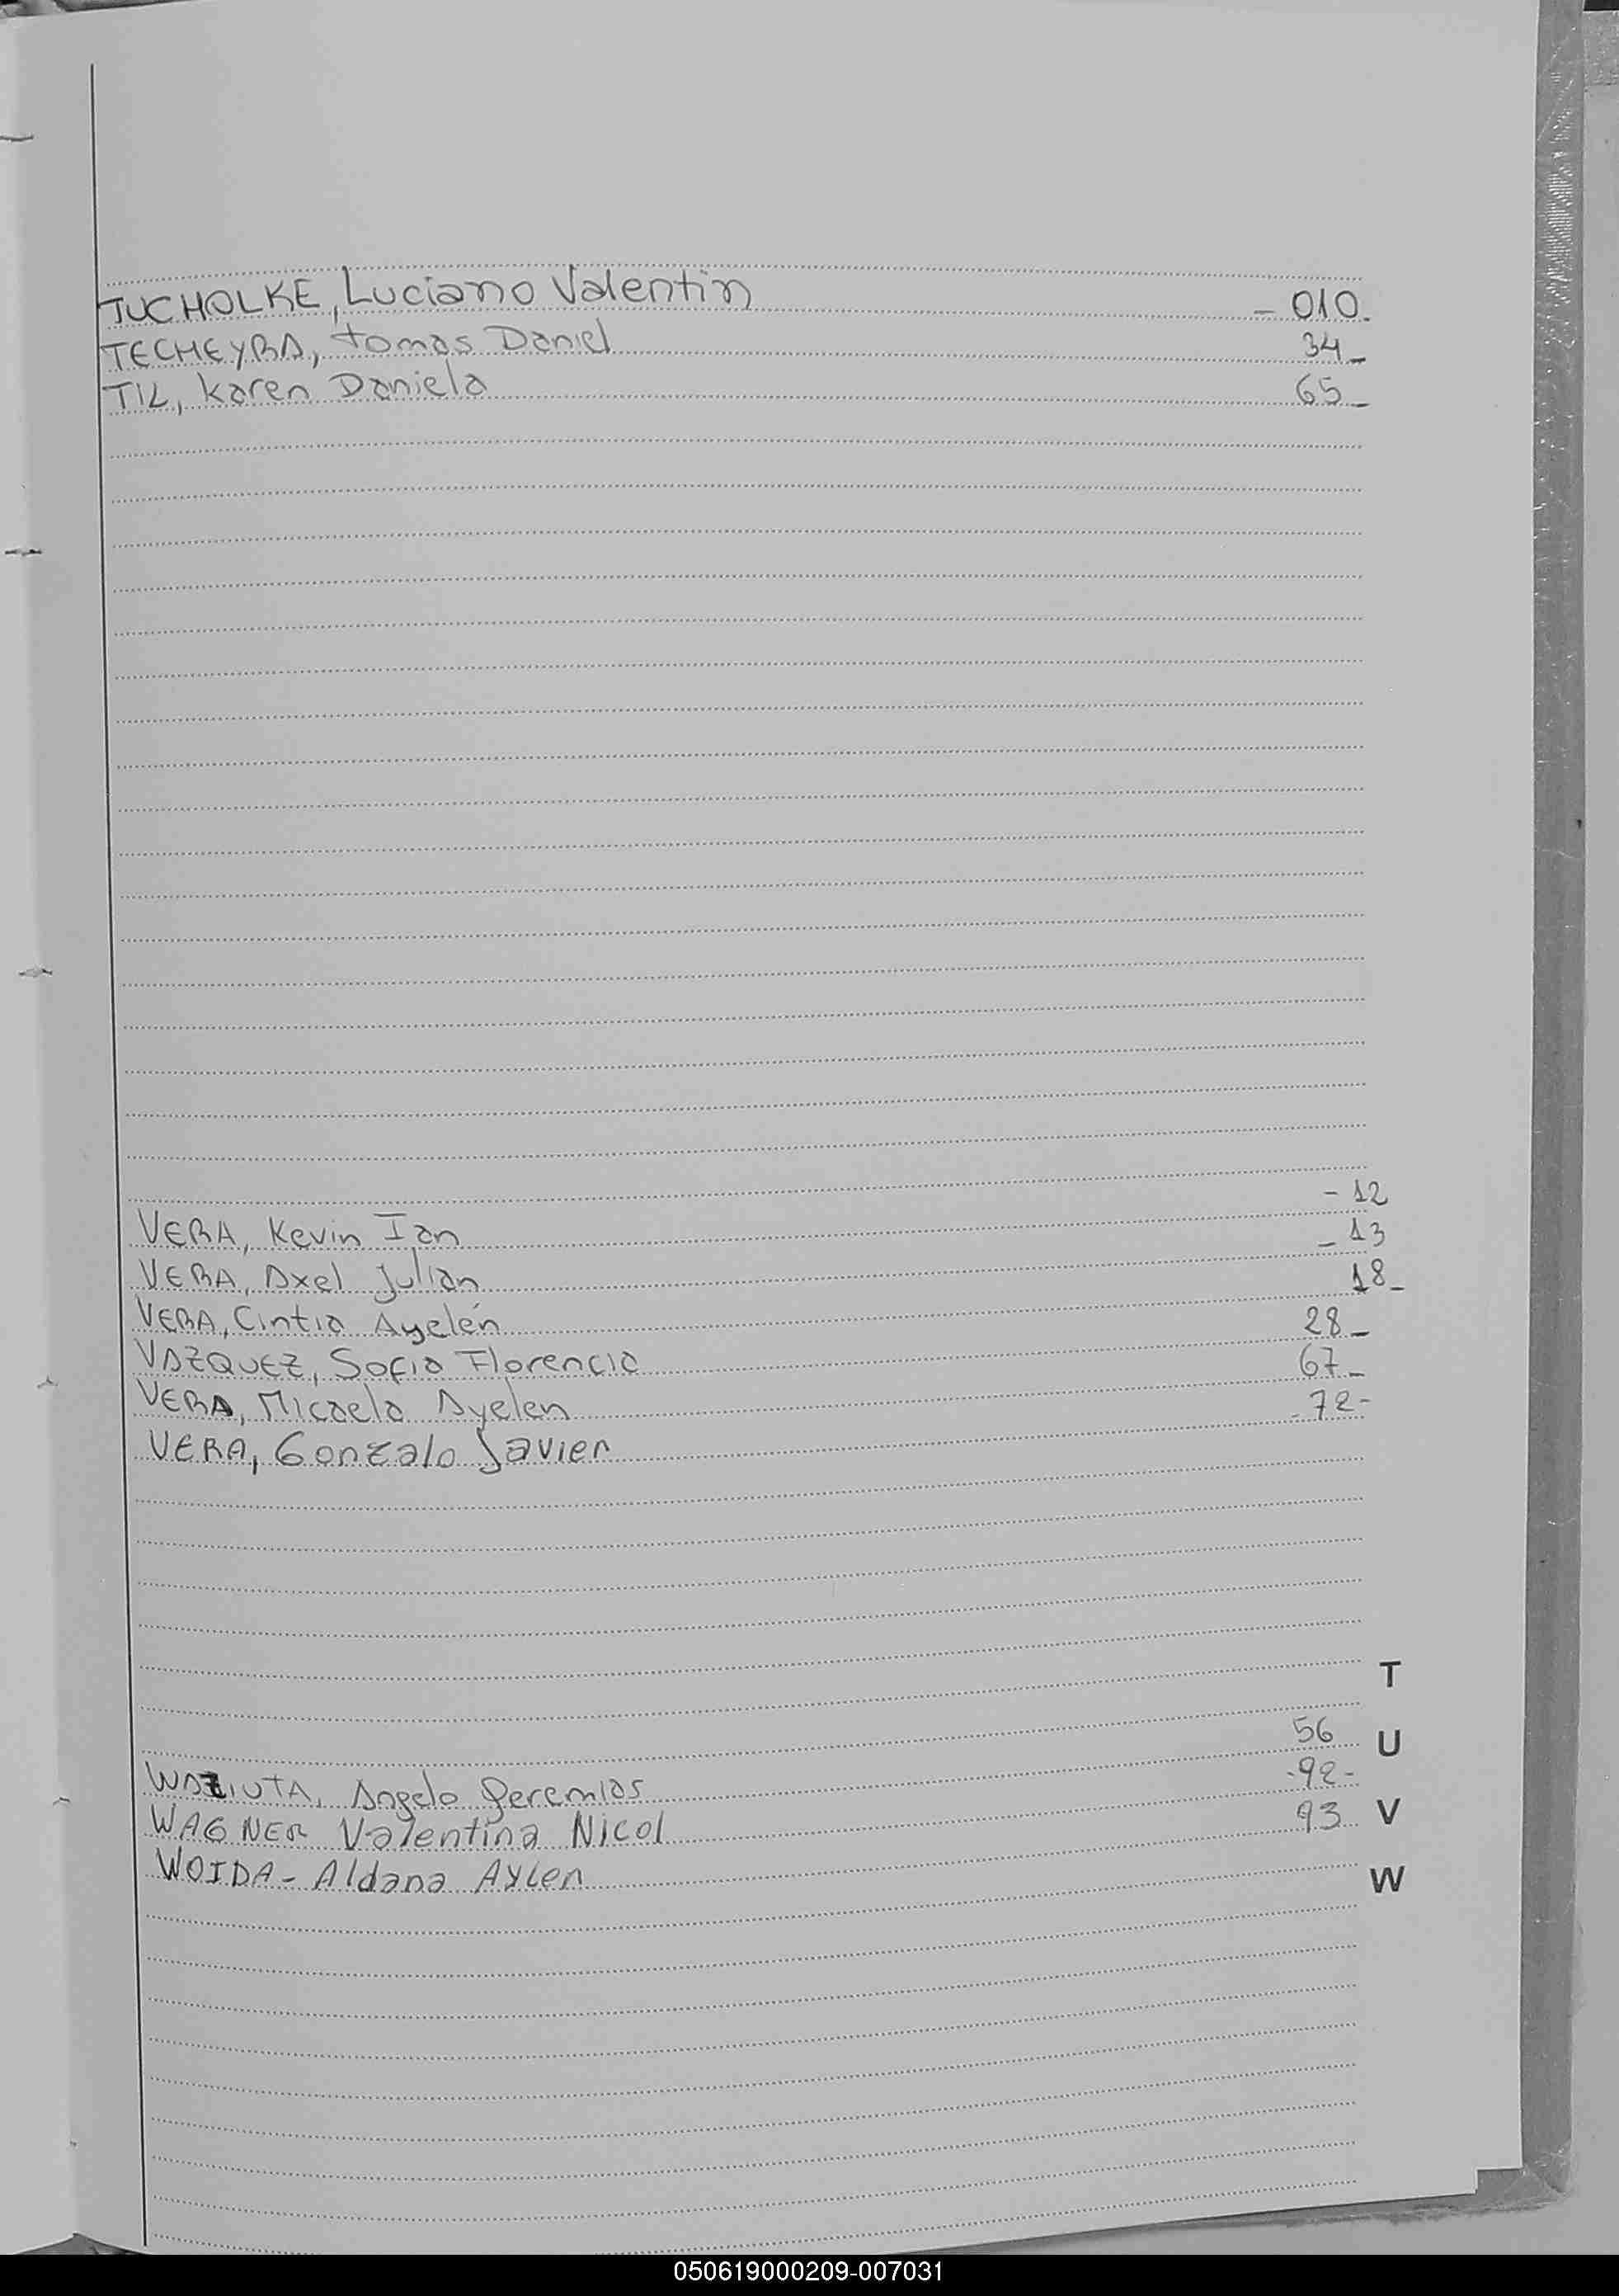 TUCHOLKE, Luciano Valentin - 010.
TECHEYRA, tomas Daniel 34-
TIL, Karen Daniela 65-
VERA, Kevin Ian - 12
VERA, Axel Julian - 13
VERA, Cintia Ayelén 18-
VAZQUEZ, Sofia Florencia 28-
VERA, Micaela Ayelen 67-
VERA, Gonzalo Javier - 72-
T
U
WAZIUTA, Angelo Jeremias 56
WAGNER Valentina Nicol -92-
V
WOIDA - Aldana Aylen 93
W
050619000209-007031